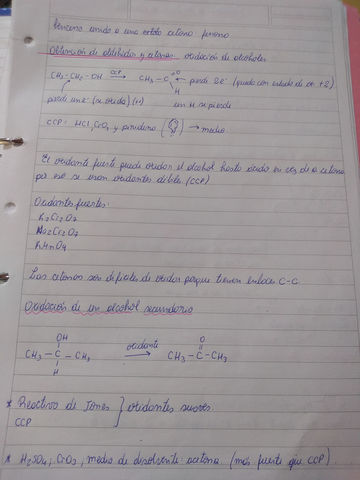 Benceno unido a una cetona cetona fenona
Obtención de aldehídos y cetonas oxidación de alcoholes
CH₃-CH₂-OH CCP → CH₃-C=O H ← pierde 2e⁻ (queda con estado de ox +2)
pierde un e⁻ (se oxida) (+1) un H se pierde
CCP = HCl, CrO₃ y piridina (N) → medio
El oxidante fuerte puede oxidar el alcohol hasta ácido en vez de a cetona
por eso se usan oxidantes débiles (CCP)
Oxidantes fuertes:
K₂Cr₂O₇
Na₂Cr₂O₇
KMnO₄
Las cetonas son difíciles de oxidar porque tienen enlace C-C
Oxidación de un alcohol secundario
OH O
CH₃-C-CH₃ oxidante → CH₃-C-CH₃
H
* Reactivo de Jones } oxidantes suaves
CCP
* H₂SO₄, CrO₃, medio de disolvente acetona (más fuerte que CCP)